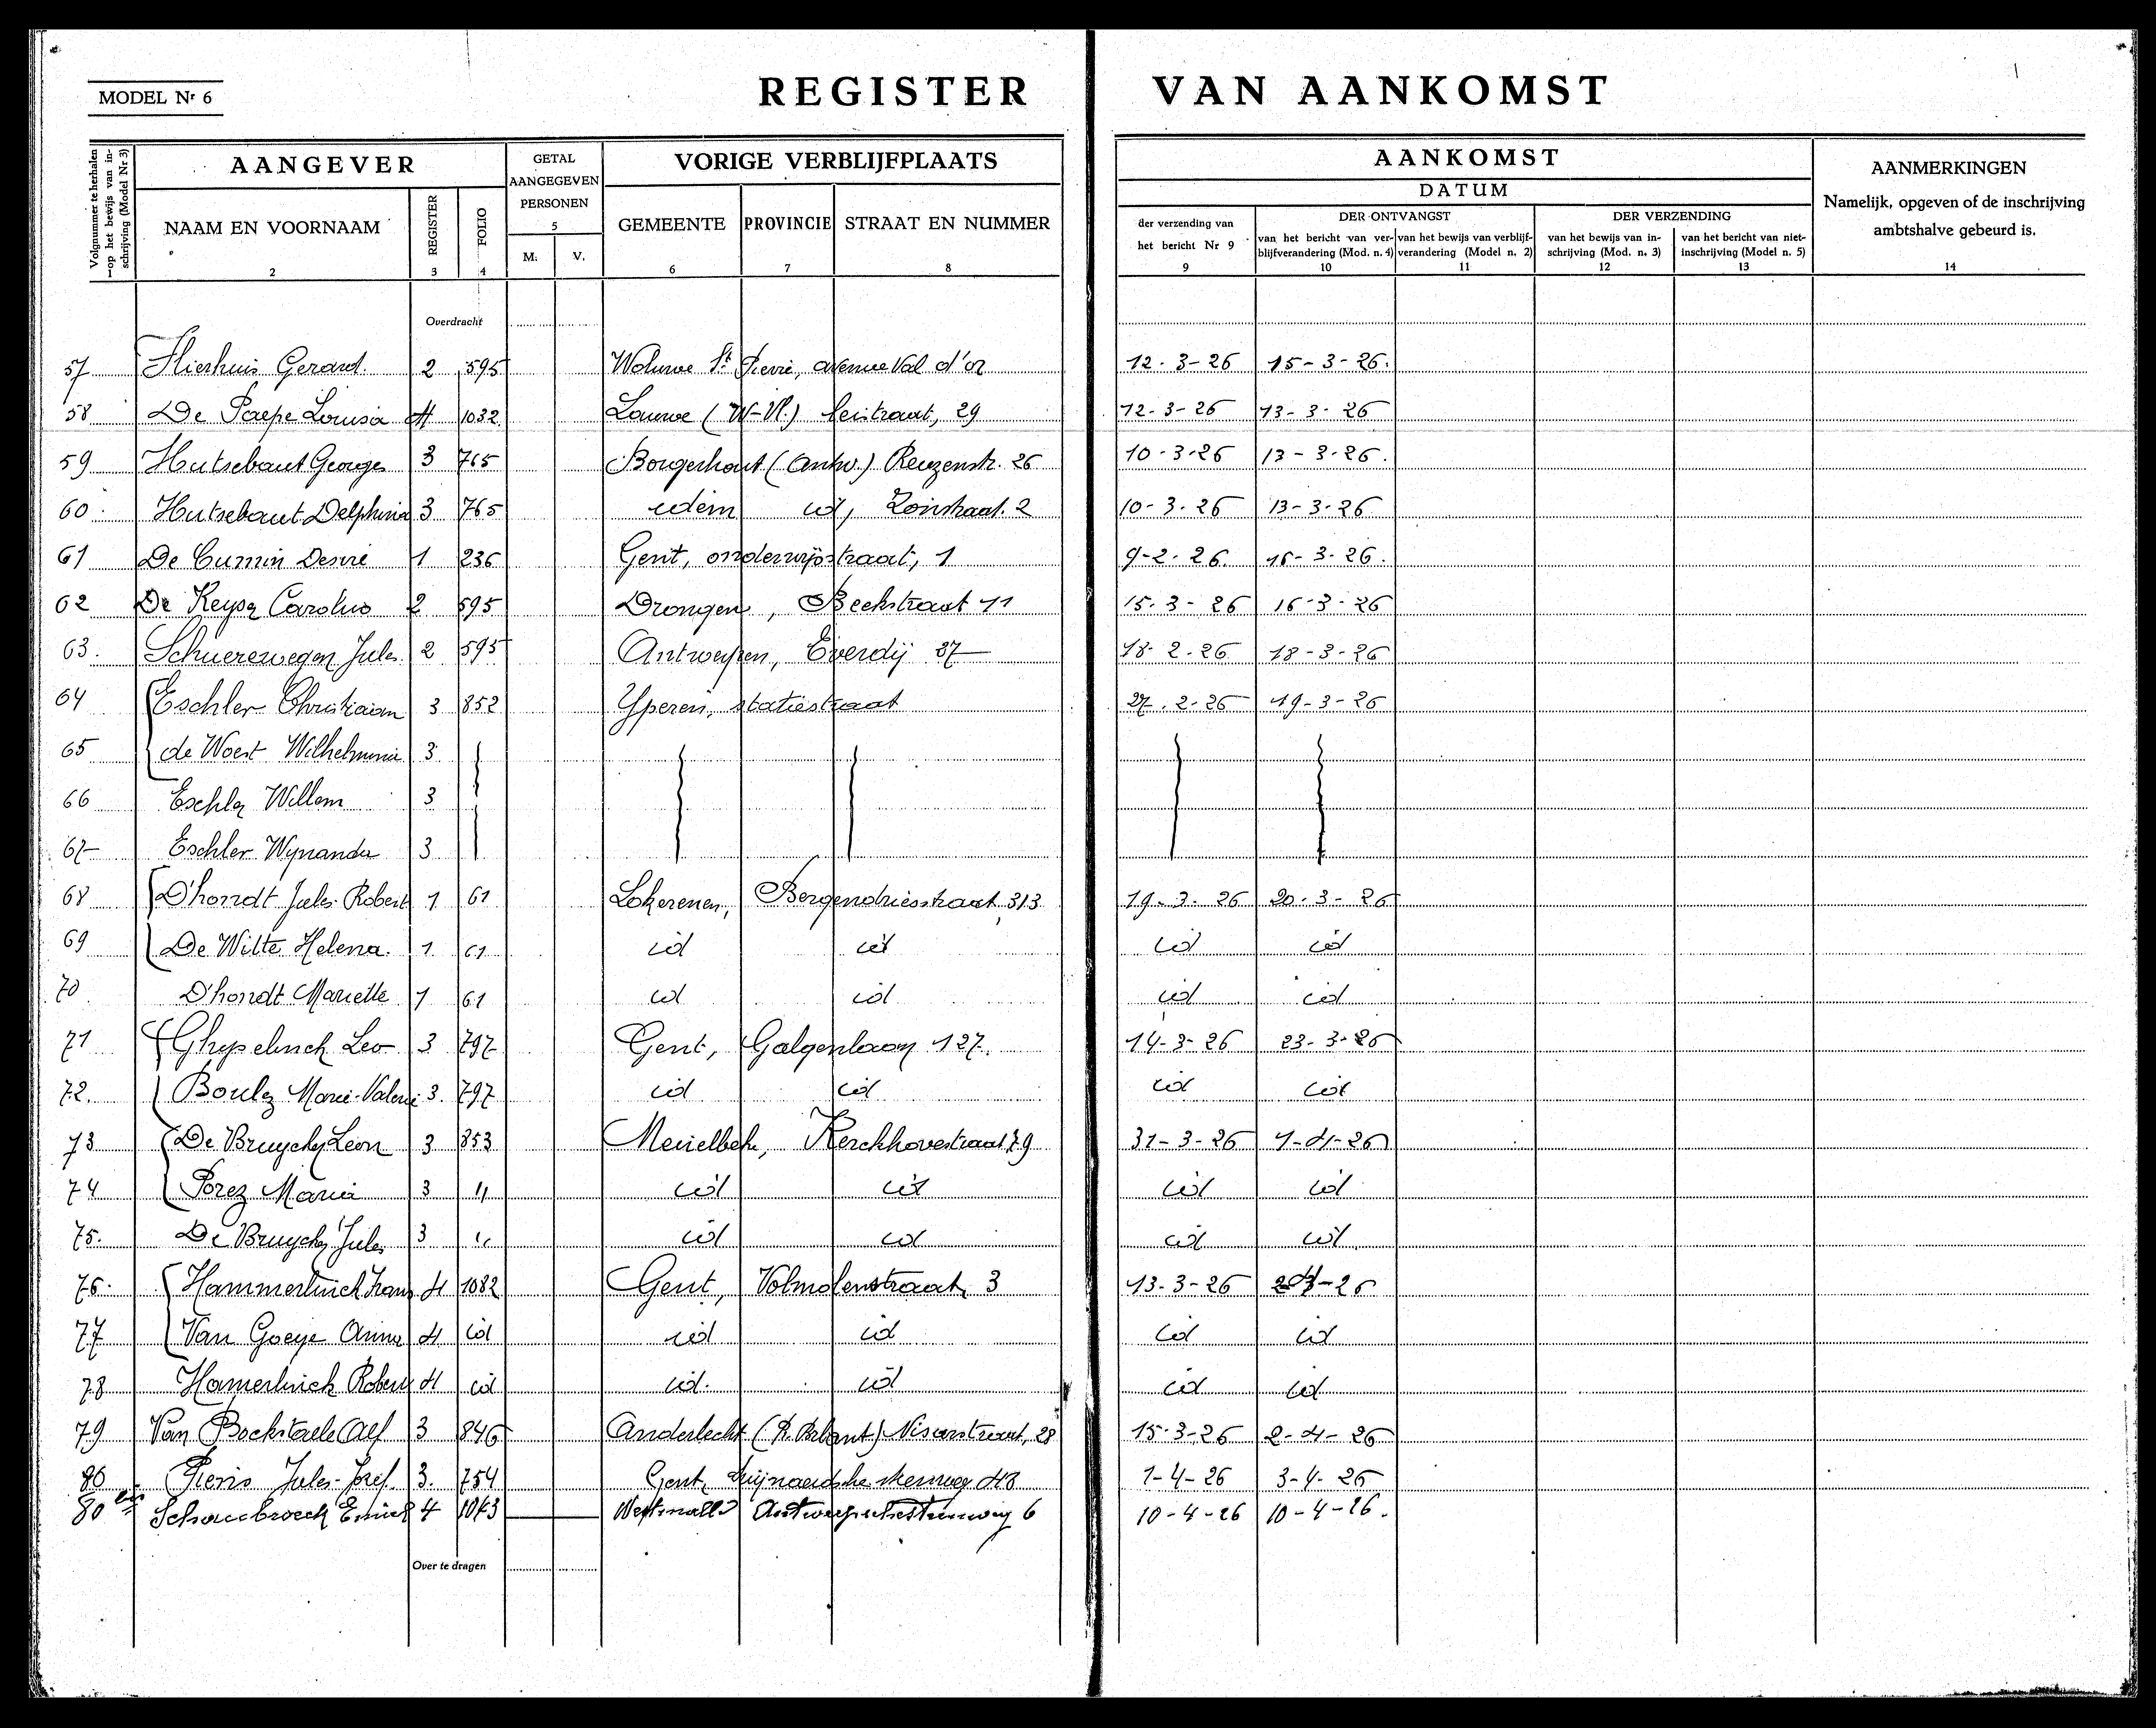 MODEL Nr 6
REGISTER VAN AANKOMST
Volgnummer te herhalen op het bewijs van inschrijving (Model Nr 3)
AANGEVER
NAAM EN VOORNAAM
2
REGISTER
3
FOLIO
4
GETAL
AANGEGEVEN
PERSONEN
5
M. V.
VORIGE VERBLIJFPLAATS
GEMEENTE
6
PROVINCIE
7
STRAAT EN NUMMER
8
AANKOMST
DATUM
der verzending van
het bericht Nr 9
9
DER ONTVANGST
van het bericht van ver-
blijfverandering (Mod. n. 4)
10
van het bewijs van verblijf-
verandering (Model n. 2)
11
DER VERZENDING
van het bewijs van in-
schrijving (Mod. n. 3)
12
van het bericht van niet-
inschrijving (Model n. 5)
13
AANMERKINGEN
Namelijk, opgeven of de inschrijving
ambtshalve gebeurd is.
14
Overdracht
57 Gerard. 2 595 Woluwe St Pierre, avenue Val d'or 12-3-26 15-3-26.
58 De Paepe Louisa 4 1032 Lauwe (W-Vl.) Leistraat, 29 12-3-26 13-3-26
59 Hutsebaut Georges 3 765 Borgerhout (Antw.) Reuzenstr. 26 10-3-26 13-3-26.
60 Hutsebaut Delphina 3 765 idem id, Zonstraat. 2 10-3-26 13-3-26
61 De Cumin Desiré 1 236 Gent, onderwijsstraat, 1 9-2-26. 16-3-26.
62 De Keyser Carolus 2 595 Drongen, Beekstraat 11 15-3-26 16-3-26
63. Schuerewegen Jules 2 595 Antwerpen, Everdij 37 18-2-26 18-3-26
64 Eschler Christiaan 3 852 Yperen, statiestraat 27-2-26 19-3-26
65 de Woert Wilhelmina 3
66 Eschler Willem 3
67 Eschler Wynanda 3
68 D'hondt Jules Robert 1 61 Lokerenen, Bergendriesstraat 313 19-3-26 20-3-26
69 De Witte Helena. 1 61 id id id id
70 D'hondt Mariette 1 61 id id id id
71 Ghyselinck Leo 3 797 Gent, Galgenlaan 127. 14-3-26 23-3-26
72. Boulez Marie-Valerie 3. 797 id id id id
73 De Bruycker Leon 3 853 Merelbeke, Kerckhovestraat 79 31-3-26 1-4-26
74 Porez Maria 3 " id id id id
75. De Bruycker Jules 3 " id id id id
76. Hammerlinck Frans 4 1082 Gent, Volmolenstraat, 3 13-3-26 2-4-26
77 Van Goeye Anna 4 id id id id id
78 Hamerlinck Robert 4 id id. id id id
79 Van Bockstaele Alf 3 846 Anderlecht (P. Brbant) 28 15-3-26 2-4-26
80 Pieris Jules-Josef. 3. 754 Gent, 48 1-4-26 3-4-26
80 bis 4 1043 Westmalle Antwerpschesteenweg 6 10-4-26 10-4-26.
Over te dragen